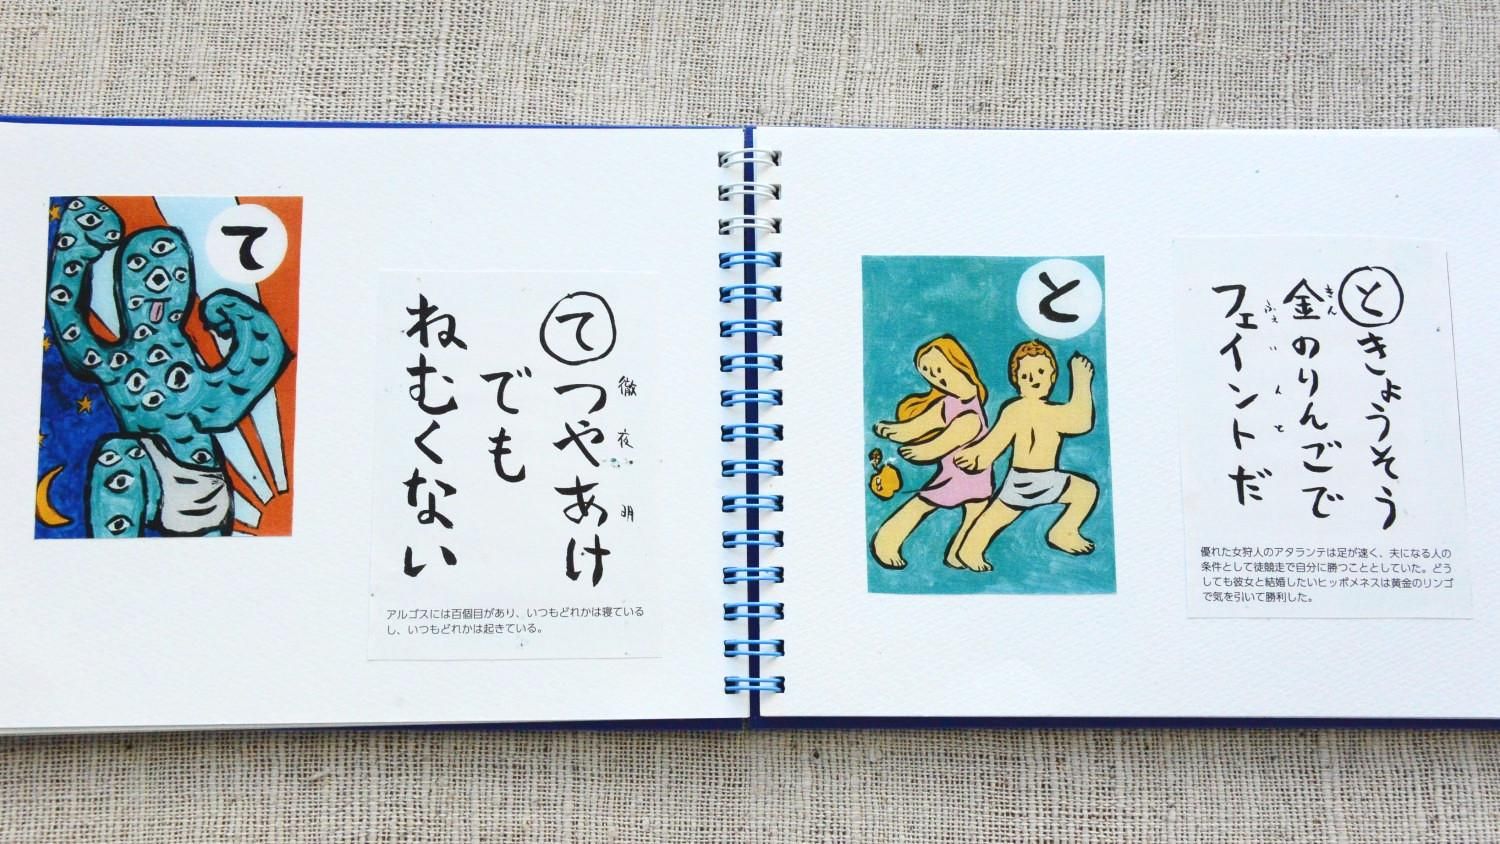 て
てつやあけ
徹夜明
でも
ねむくない
アルゴスには百個目があり、いつもどれかは寝ている
し、いつもどれかは起きている。
と
ときょうそう
金のりんごで
きん
フェイントだ
ふぇいんと
優れた女狩人のアタランテは足が速く、夫になる人の
条件として徒競走で自分に勝つこととしていた。どう
しても彼女と結婚したいヒッポメネスは黄金のリンゴ
で気を引いて勝利した。